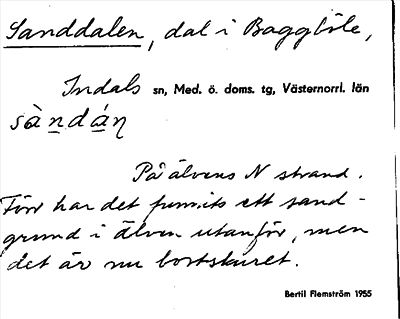 Sanddalen, dal i Baggböle,
Indals sn, Med. ö. doms. tg, Västernorrl. län
sàndáŋ
På älvens N strand.
Förr har det funnits ett sand-
grund i älven utanför, men
det är nu bortskuret.
Bertil Flemström 1955